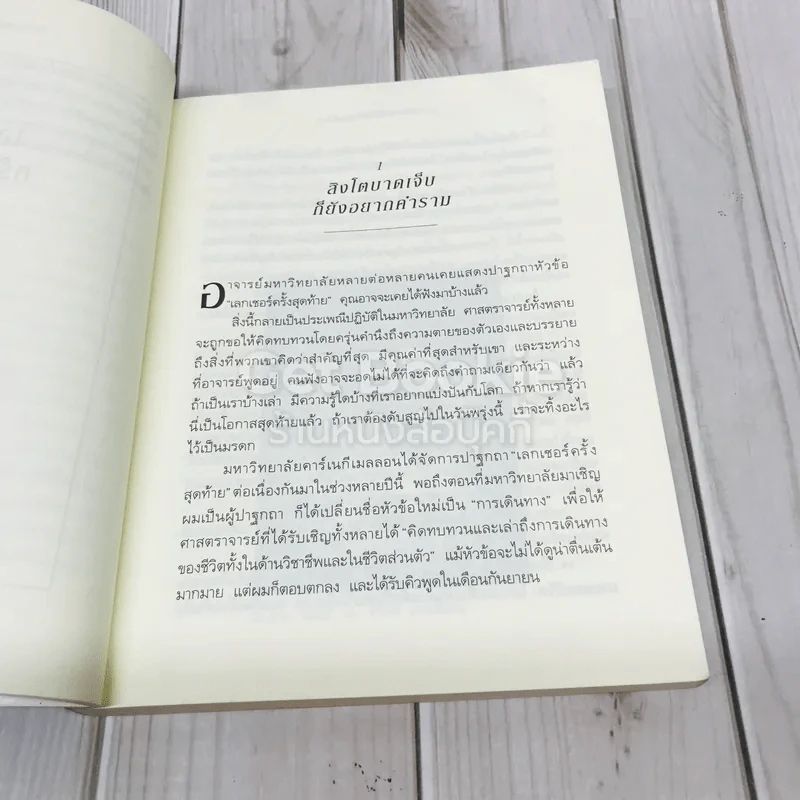 1
สิงโตบาดเจ็บ
ก็ยังอยากคำราม
อาจารย์มหาวิทยาลัยหลายต่อหลายคนเคยแสดงปาฐกถาหัวข้อ
“เลกเชอร์ครั้งสุดท้าย” คุณอาจจะเคยได้ฟังมาบ้างแล้ว
สิ่งนี้กลายเป็นประเพณีปฏิบัติในมหาวิทยาลัย ศาสตราจารย์ทั้งหลาย
จะถูกขอให้คิดทบทวนโดยครุ่นคำนึงถึงความตายของตัวเองและบรรยาย
ถึงสิ่งที่พวกเขาคิดว่าสำคัญที่สุด มีคุณค่าที่สุดสำหรับเขา และระหว่าง
ที่อาจารย์พูดอยู่ คนฟังอาจจะอดไม่ได้ที่จะคิดถึงคำถามเดียวกันว่า แล้ว
ถ้าเป็นเราบ้างเล่า มีความรู้ใดบ้างที่เราอยากแบ่งปันกับโลก ถ้าหากเรารู้ว่า
นี่เป็นโอกาสสุดท้ายแล้ว ถ้าเราต้องดับสูญไปในวันพรุ่งนี้ เราจะทิ้งอะไร
ไว้เป็นมรดก
ร้านหนังสือบุ๊คที
มหาวิทยาลัยคาร์เนกีเมลลอนได้จัดการปาฐกถา “เลกเชอร์ครั้ง
สุดท้าย” ต่อเนื่องกันมาในช่วงหลายปีนี้ พอถึงตอนที่มหาวิทยาลัยมาเชิญ
ผมเป็นผู้ปาฐกถา ก็ได้เปลี่ยนชื่อหัวข้อใหม่เป็น “การเดินทาง” เพื่อให้
ศาสตราจารย์ที่ได้รับเชิญทั้งหลายได้ “คิดทบทวนและเล่าถึงการเดินทาง
ของชีวิตทั้งในด้านวิชาชีพและในชีวิตส่วนตัว” แม้หัวข้อจะไม่ได้ดูน่าตื่นเต้น
มากมาย แต่ผมก็ตอบตกลง และได้รับคิวพูดในเดือนกันยายน